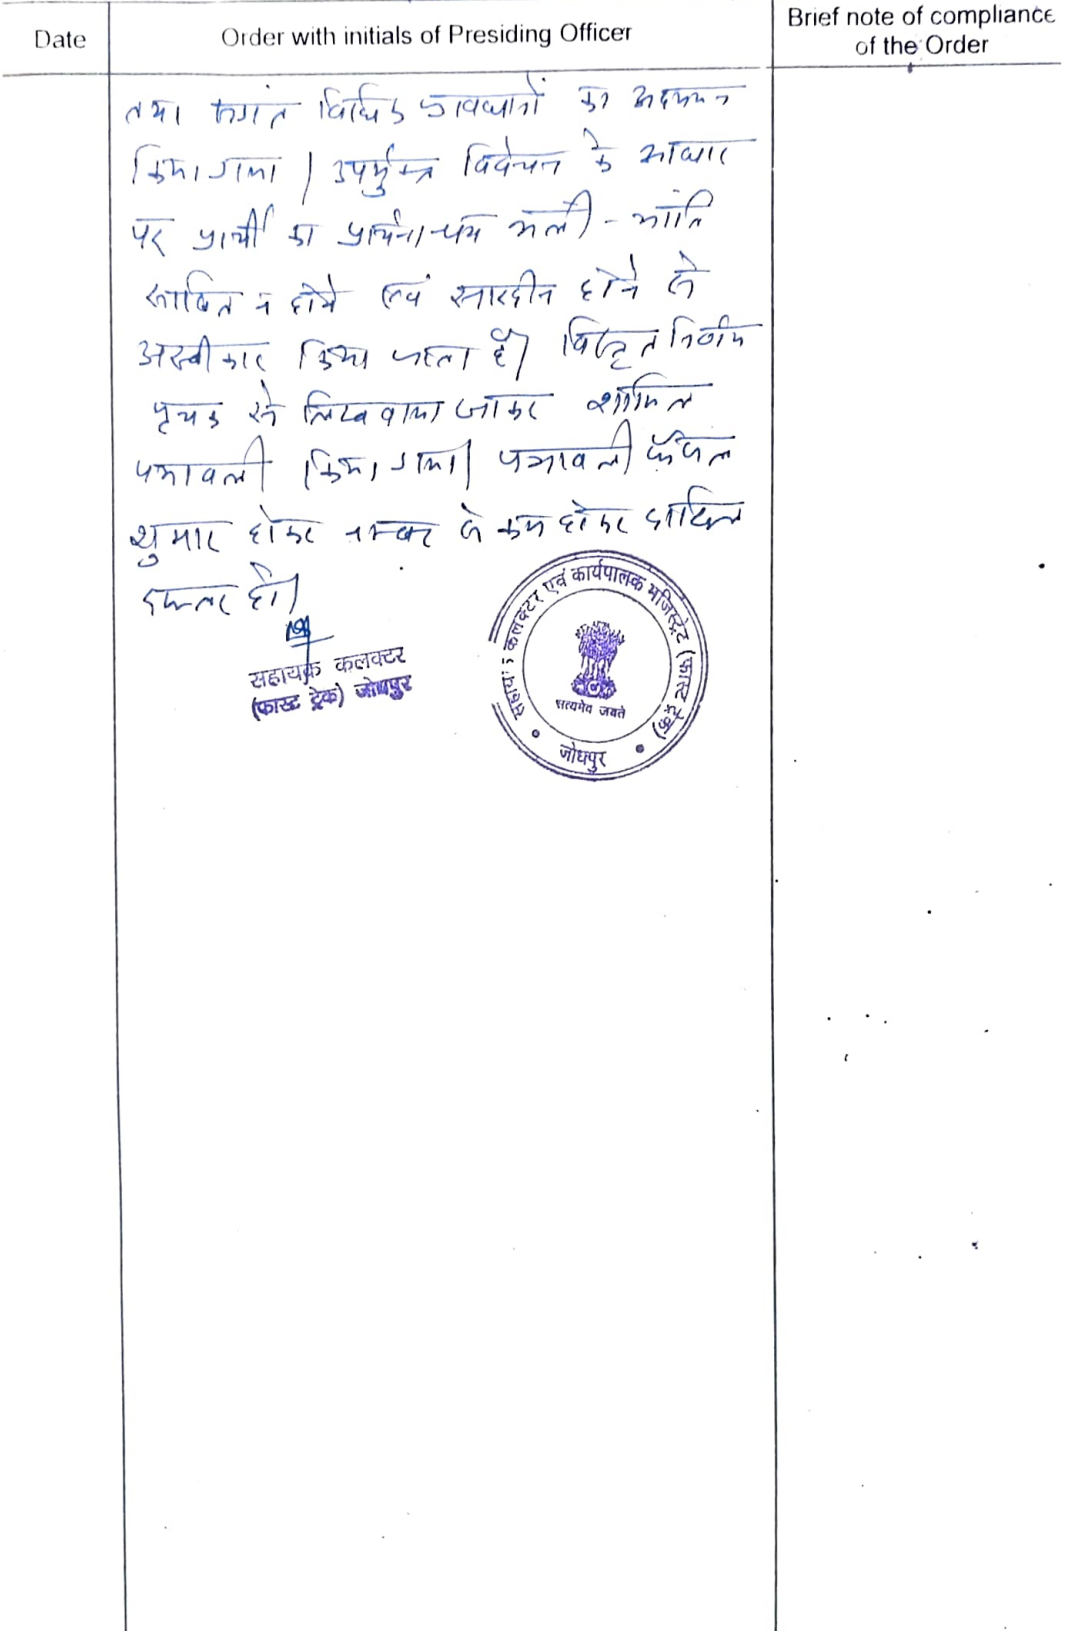 Date
Order with initials of Presiding Officer
Brief note of compliance
of the Order
तथा विधिक प्रावधानों का अध्ययन
किया गया। उपर्युक्त विवेचन के आधार
पर प्रार्थी का प्रार्थना-पत्र भली-भांति
साबित न होने एवं सारहीन होने से
अस्वीकार किया जाता है। विस्तृत निर्णय
पृथक से लिखवाया जाकर शामिल
पत्रावली किया गया। पत्रावली फैसल
शुमार होकर नम्बर से कम होकर दाखिल
दफ्तर हो।
सहायक कलक्टर
(फास्ट ट्रेक) जोधपुर
सहायक कलक्टर एवं कार्यपालक मजिस्ट्रेट (फास्ट ट्रेक)
सत्यमेव जयते
जोधपुर